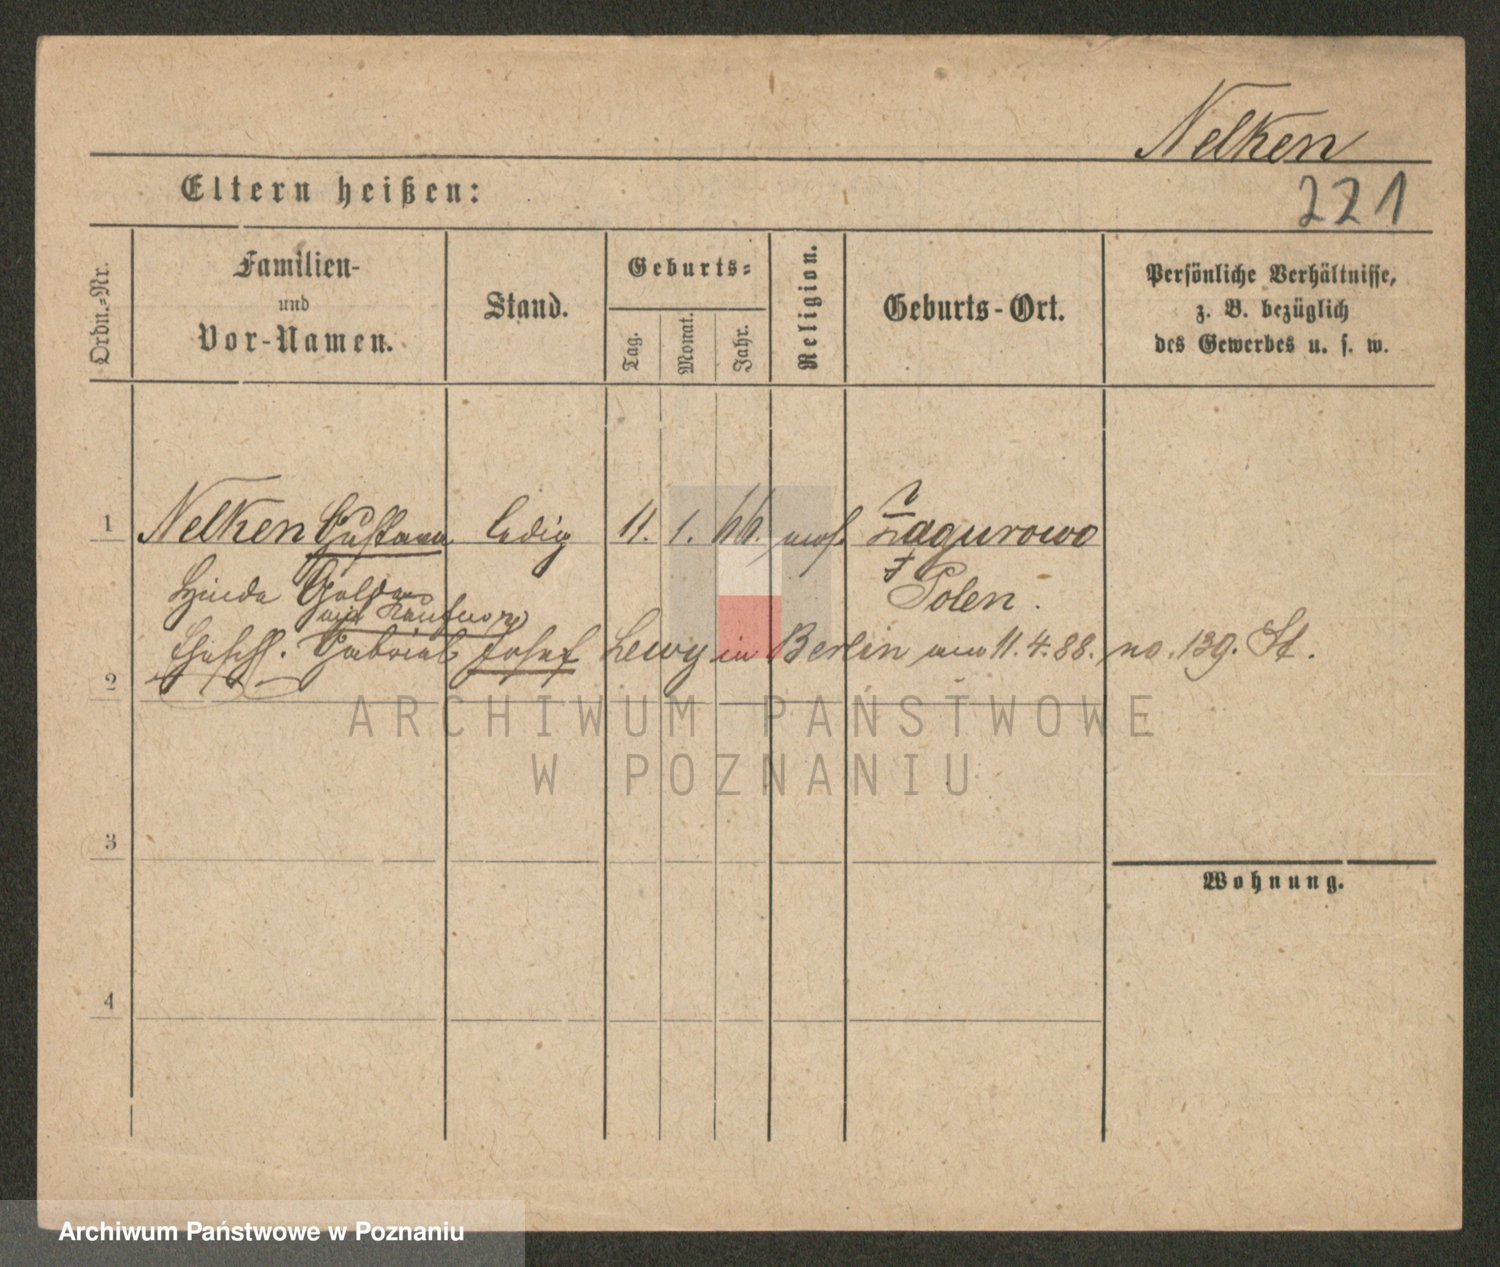 Nelken
Eltern heißen:
221
Ordn.=Nr.
Familien-
und
Vor-Namen.
Stand.
Geburts=
Tag.
Monat.
Jahr.
Religion.
Geburts-Ort.
Persönliche Verhältnisse,
z. B. bezüglich
des Gewerbes u. s. w.
1 Nelken Gustava ledig 11. 1. 66. mos. Zagurowo
Hinda Golda Polen.
Gabriel Josef Lewy in Berlin am 11.4.88. no. 139. St.
2
ARCHIWUM PAŃSTWOWE
W POZNANIU
3
Wohnung.
4
Archiwum Państwowe w Poznaniu